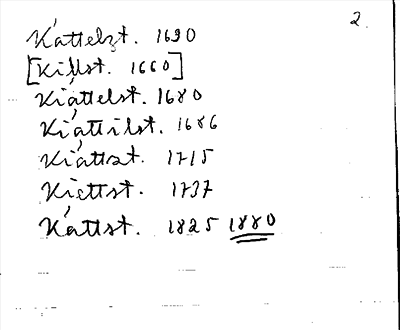 2.
Káttelzt. 1690
[Killst. 1660]
Kiáttelst. 1680
Kiáttilst. 1686
Kiáttst. 1715
Kiettst. 1737
Káttst. 1825 1880